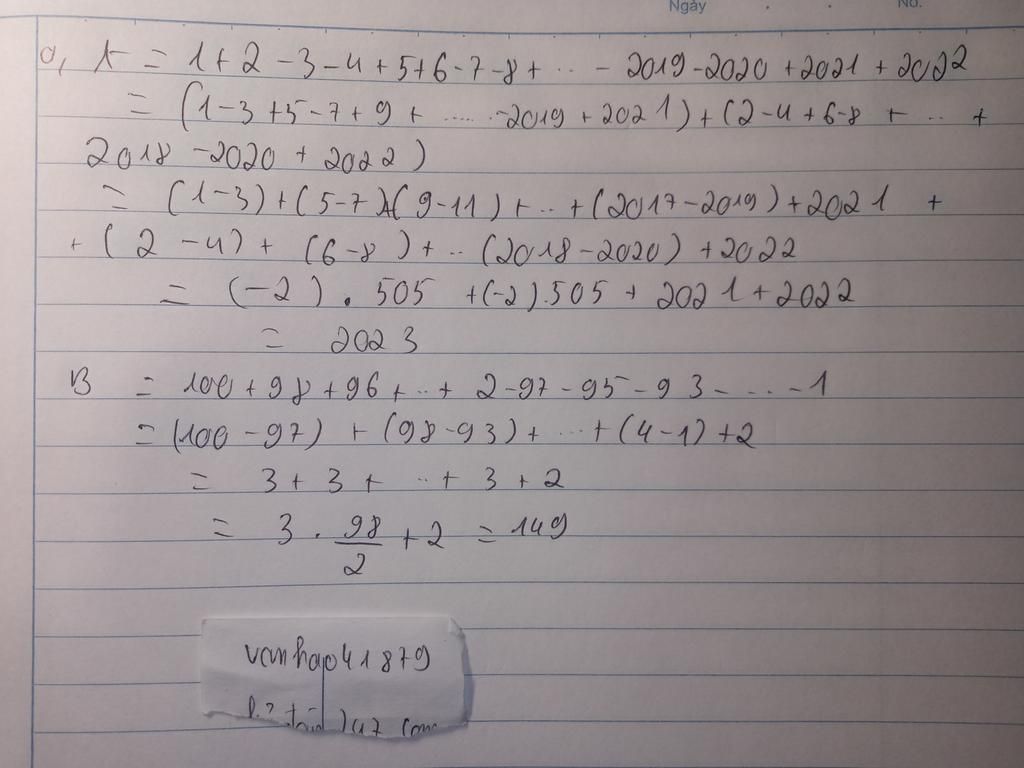 Ngày No.
a, A = 1+2-3-4+5+6-7-8+ .. - 2019-2020+2021+2022
= (1-3+5-7+9+ ..... -2019+2021)+(2-4+6-8 + .. +
2018-2020+2022)
= (1-3)+(5-7)+(9-11)+..+(2017-2019)+2021 +
+(2-4)+(6-8)+..(2018-2020)+2022
= (-2).505 +(-2).505+2021+2022
= 2023
B = 100+98+96+..+ 2-97-95-93-...-1
= (100-97) + (98-93)+...+(4-1)+2
= 3+3+ .. + 3+2
= 3 . 98/2 + 2 = 149
vanhap41879